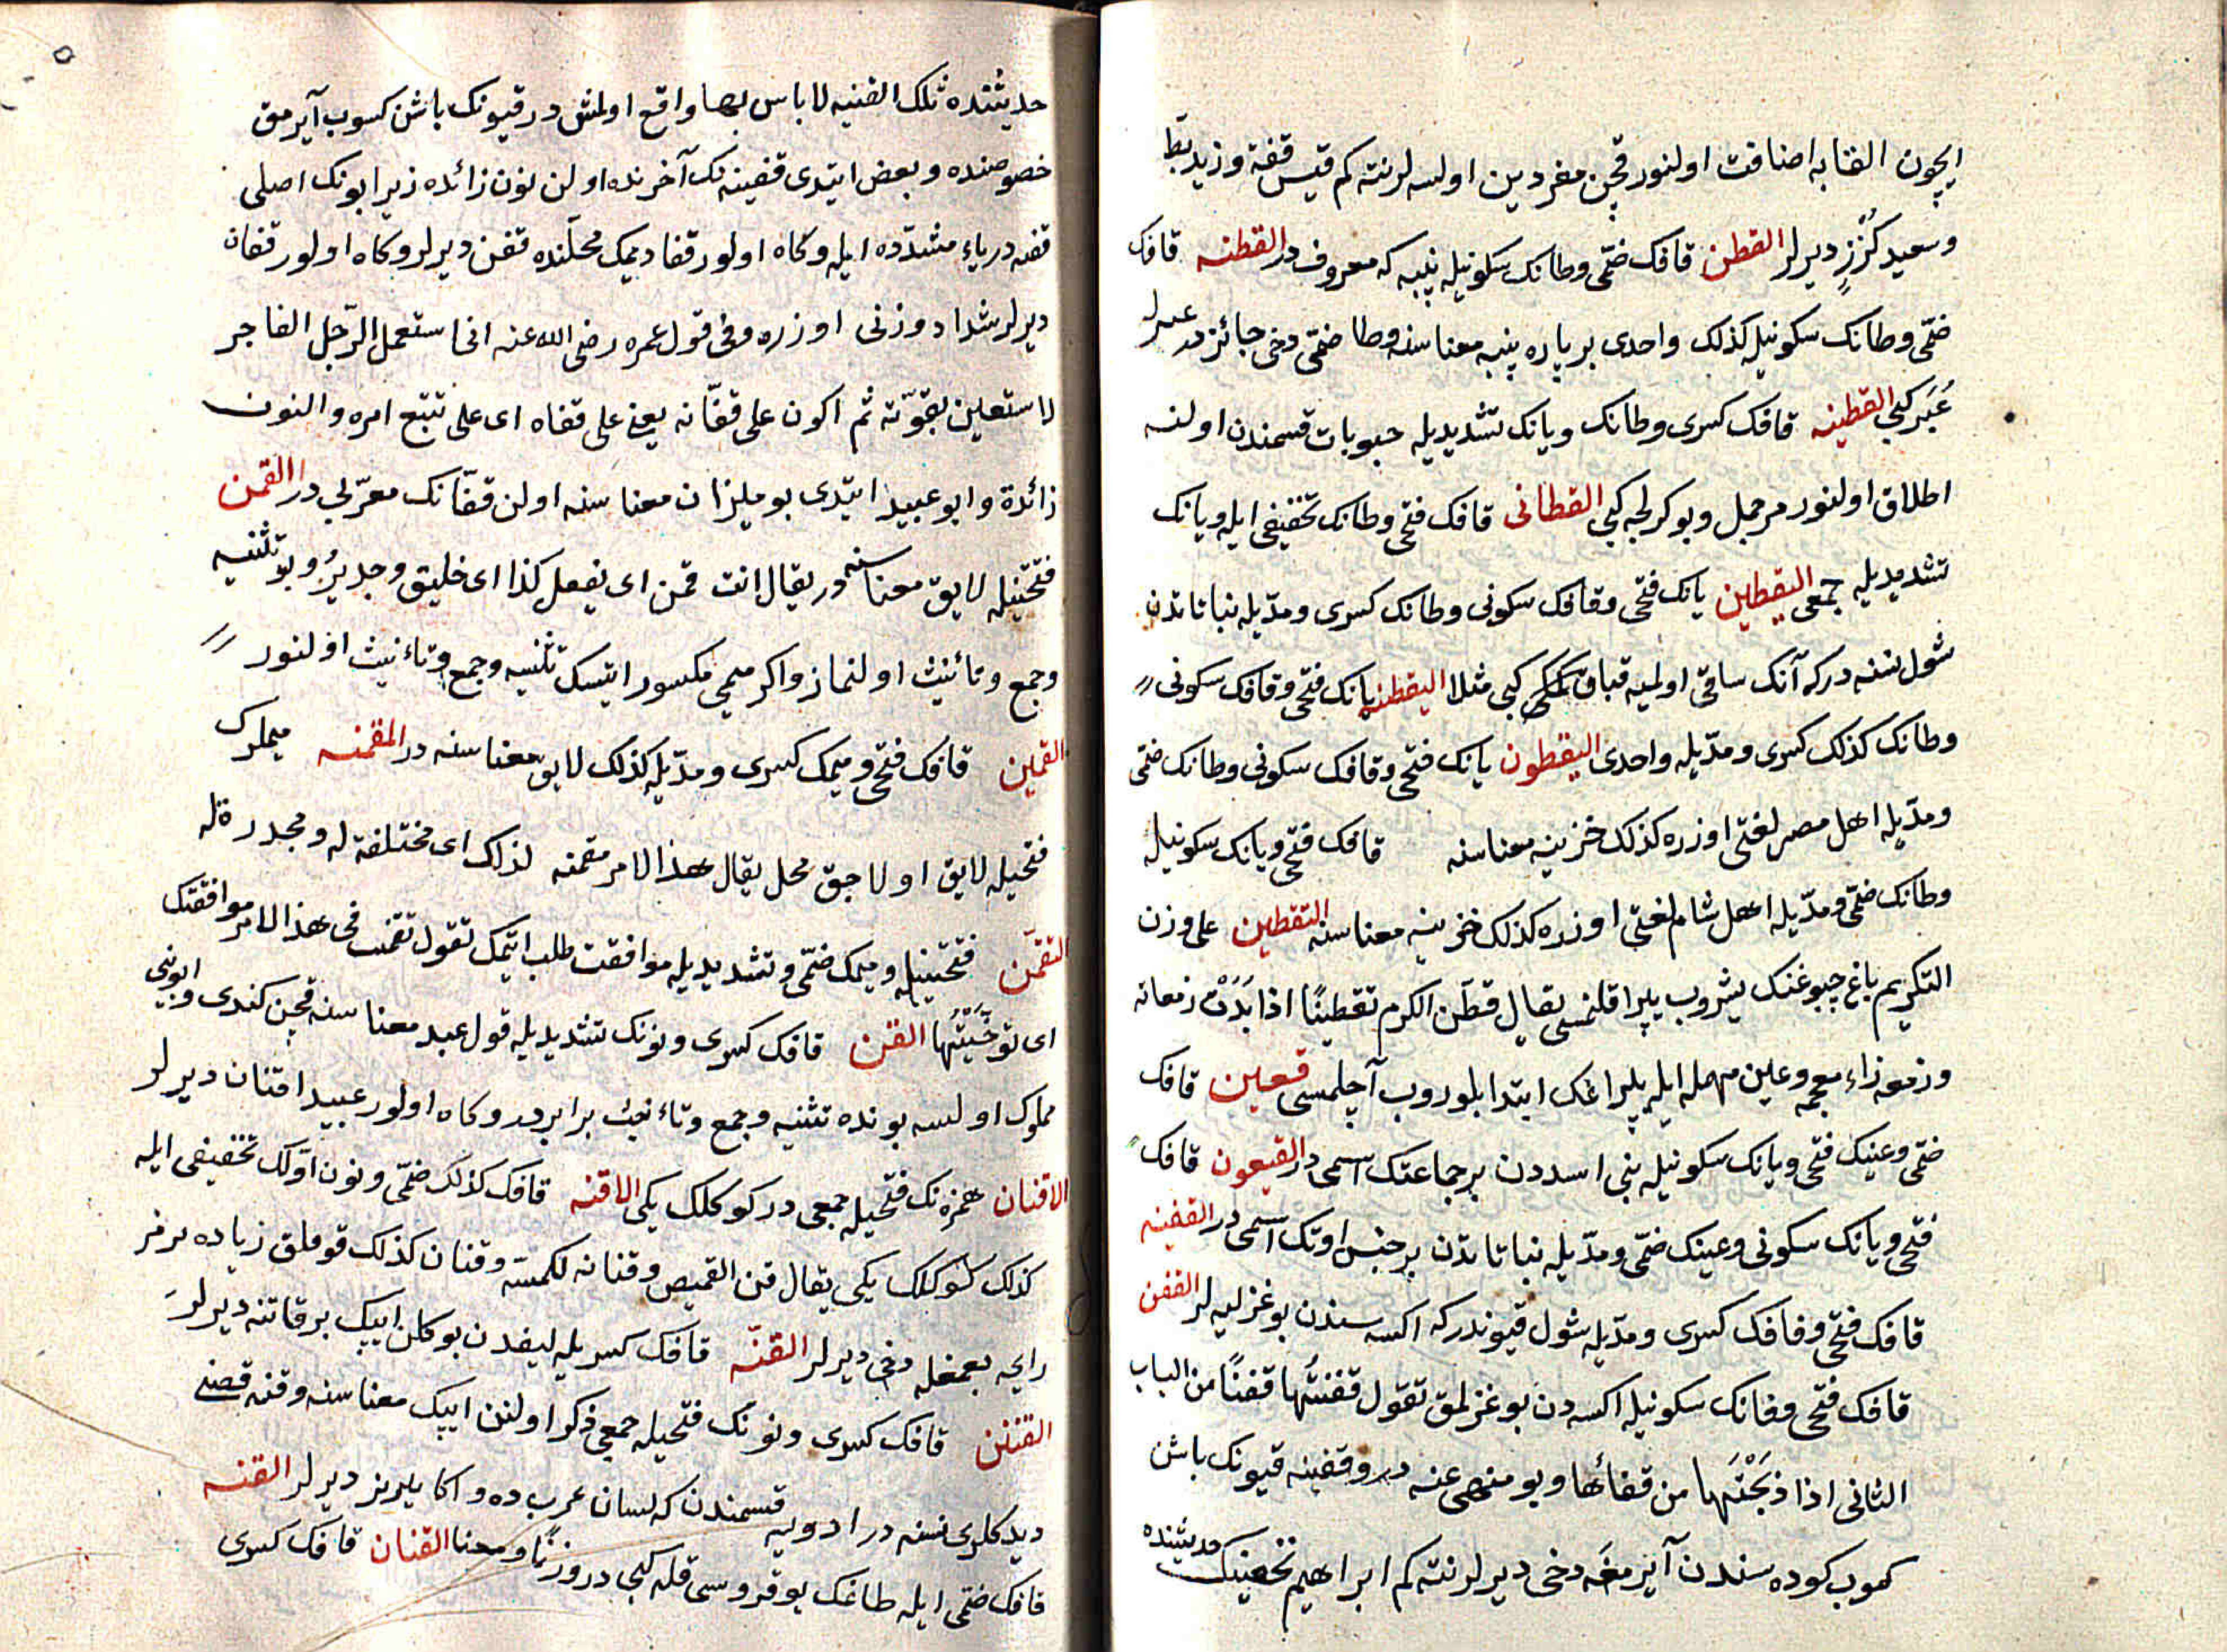 ایچون القابه اضافت اولنور قچن مفردین اولسه لر نته کم قیس قفة وزید بطة
وسعید کُرْزٍ دیرلر القطن قافک ضمی وطانک سکونیله پنبه که معروفدر القطنه قافک
ضمی وطانک سکونیله کذلک واحدی بر پاره پنبه معناسنه وطا ضمی دخی جائزدر
عُسُر کبی القطنیه قافک کسری وطانک ویانک تشدیدیله حبوبات قسمندن اولنه
اطلاق اولنور مرجمک وبوکرلجه کبی القطانی قافک فتحی وطانک تخفیفی ایله ویانک
تشدیدیله جمعی الیقطین یانک فتحی وقافک سکونی وطانک کسری ومدّیله نباتاتدن
شول نسنه درکه آنک ساقی اولمیه قباق کبی مثلا الیقطنه یانک فتحی وقافک سکونی
وطانک کذلک کسری ومدّیله واحدی الیقطون یانک فتحی وقافک سکونی وطانک ضمی
ومدّیله اهل مصر لغتی اوزره کذلک خزینه معناسنه قافک فتحی ویانک سکونیله
وطانک ضمی ومدّیله اهل شام لغتی اوزره کذلک خزینه معناسنه التقطین علی وزن
التکریم باغ چبوغنک یشروب یپراقلنمسی یقال قطّن الکرم تقطینًا اذا بَدَتْ زمعاته
وزمعه زاء معجمه وعین مهمله ایله یپراغک ابتدا بلوروب آچلمسی قعین قافک
ضمی وعینک فتحی ویانک سکونیله بنی اسددن بر جماعتک اسمی در القیعون قافک
فتحی ویانک سکونی وعینک ضمی ومدّیله نباتاتدن بر جنس اوتک اسمی در القفینه
قافک فتحی وفافک کسری ومدّیله شول قیوندرکه اکسه سندن بوغزلیه لر القفن
قافک فتحی وفانک سکونیله اکسه دن بوغزلمق تقول قفنتُها قفنًا من الباب
الثانی اذا ذبَحْتَها من قفائها وبو منهی عنه در وقفینه قیونک باشن
کسوب کوده سندن آیرمغه دخی دیرلر نته کم ابراهیم نخعینک حدیثنده
حدیثنده تلک القفینه لا باس بها واقع اولمش در قیونک باشن کسوب آیرمق
خصوصنده وبعض ایتدی قفینه نک آخرنده اولن نون زائده زیرا بونک اصلی
قفیه در یاء مشدّده ایله وکاه اولور قفا دیمک محلّنده قفن دیرلر وکاه اولور قفان
دیرلر شداد وزنی اوزره وفی قول عمره رضی الله عنه انی استعمل الرّجل الفاجر
لاستعین بقوّته ثم اکون علی قفّانه یعنی علی قفاه ای علی تتبّع امره والنون
زائدة وابو عبید ایتدی بو میزان معناسنه اولن قفّانک معرّبی در القمن
فتحتیله لایق معناسنه در یقال انت قمن ای یفعل کذا ای خلیق وجدیرُ وبو تثنیه
وجمع وتأنیث اولنماز واکر میمی مکسور ایتسک تثنیه وجمع وتاءنیث اولنور
القمین قافک فتحی ومیمک کسری ومدّیله کذلک لایق معناسنه در المقمنه میملرک
فتحیله لایق اولاجق محل یقال هذا الامر مقمنه لذلک ای مختلقة له ومجدرة له
التقمّن فتحتینیله ومیمک ضمی وتشدیدیله موافقت طلب ایتمک تقول تقمنت فی هذا الامر موافقتک
ای توخّیْتُها القن قافک کسری ونونک تشدیدیله قول عبد معناسنه قچن کندی وابوینی
مملوک اولسه بونده تثنیه وجمع وتاءنیث برابردر وکاه اولور عبید اقنان دیرلر
الاقنان همزه نک فتحیله جمعی در کوکلک یکی الاقنه قافک کذلک ضمی ونون اوّلک تخفیفی ایله
کذلک کوکلک یکی یقال قن القمیص وقنانه لکمّه وقنان کذلک قوملق زیاده بر مز
رایحه بعمغله دخی دیرلر القنّه قافک کسریله لیفدن بوکلن ایپک بر قاتنه دیرلر
القنن قافک کسری ونونک فتحیله جمعی ذکر اولنن ایپک معناسنه وقنه قصنی
دیدکلری نسنه در ادویه قسمندن که لسان عربده واکا بیرزیز دیرلر القنه
قافک ضمی ایله طاغک یوقروسی قله کبی در وزنًا ومعنا القنان قافک کسری